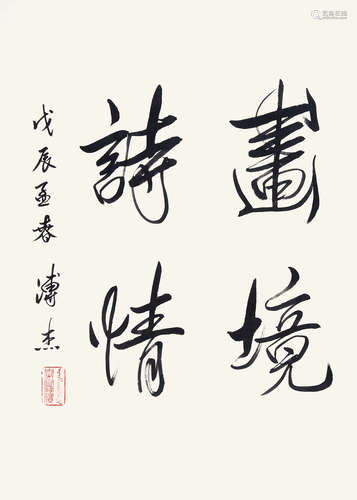 畫境
詩情
戊辰孟春 溥杰